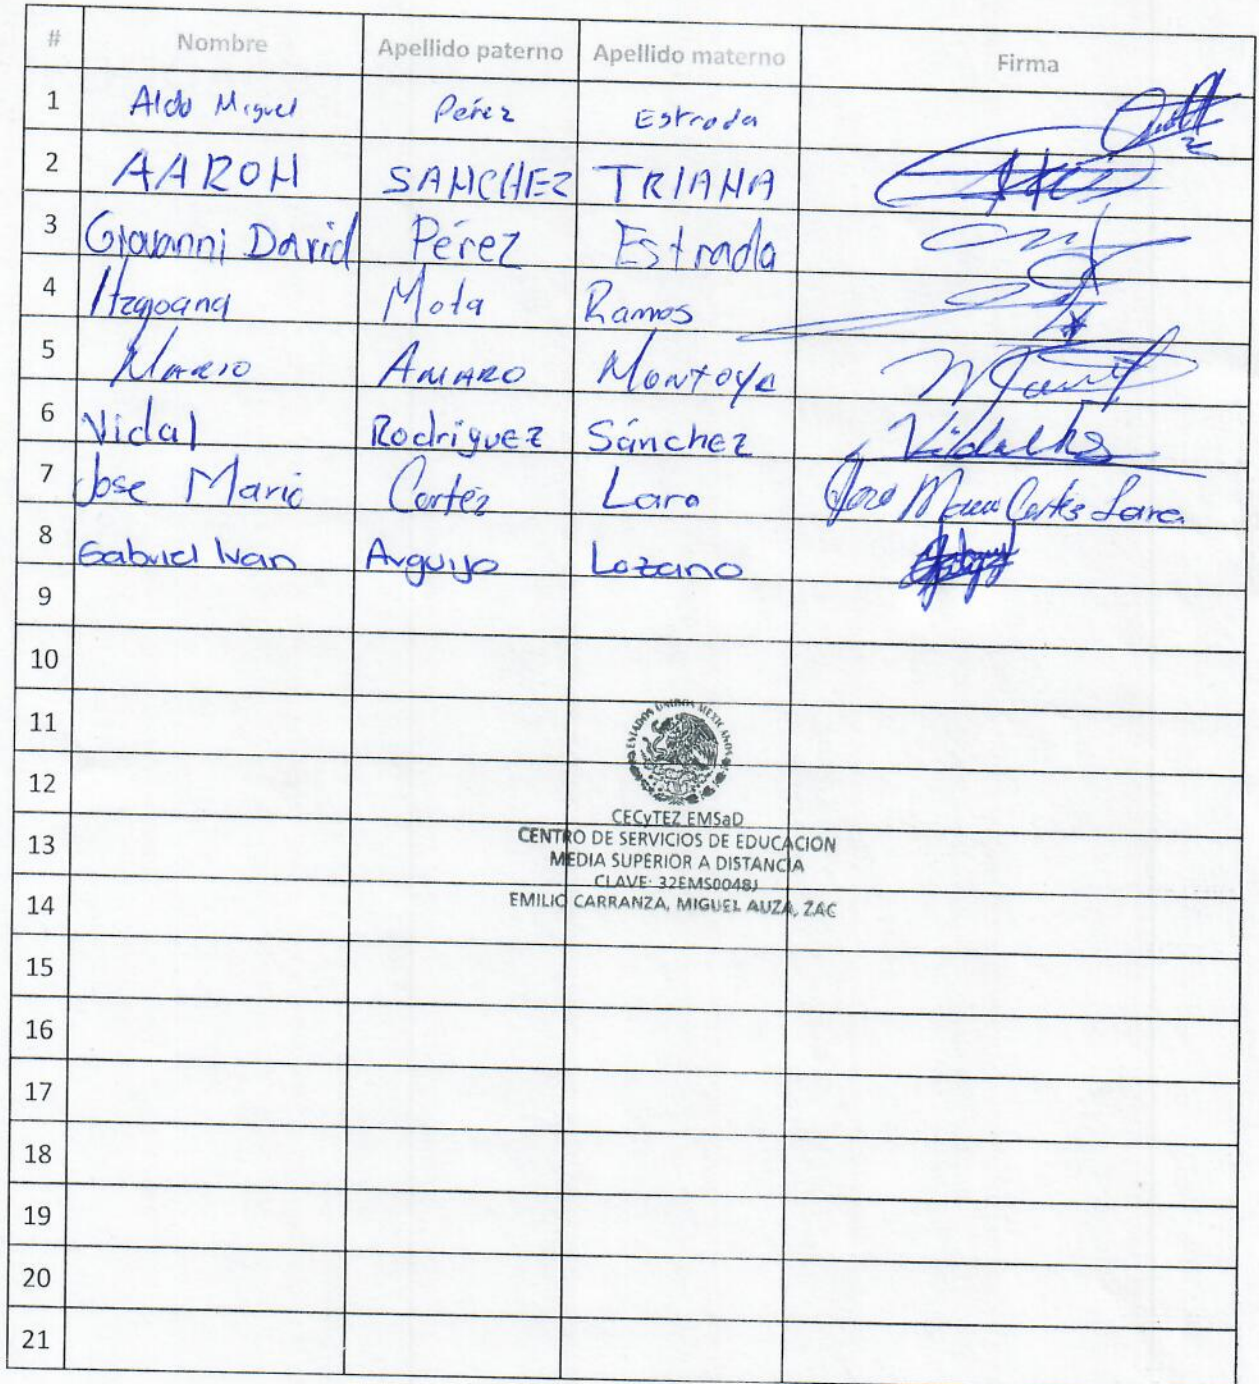 # Nombre Apellido paterno Apellido materno Firma
1 Aldo Miguel Pérez Estrada
2 AARON SANCHEZ TRIANA
3 Giovanni David Pérez Estrada
4 Mota Ramos
5 Mario AMARO Montoya
6 Vidal Rodriguez Sánchez
7 Jose Mario Cortéz Lara Jose Mario Cortés Lara
8 Gabriel Ivan Arguijo Lozano
9
10
11
ESTADOS UNIDOS MEXICANOS
12
CECyTEZ EMSaD
13 CENTRO DE SERVICIOS DE EDUCACION
MEDIA SUPERIOR A DISTANCIA
CLAVE: 32EMS0048J
14 EMILIO CARRANZA, MIGUEL AUZA, ZAC
15
16
17
18
19
20
21